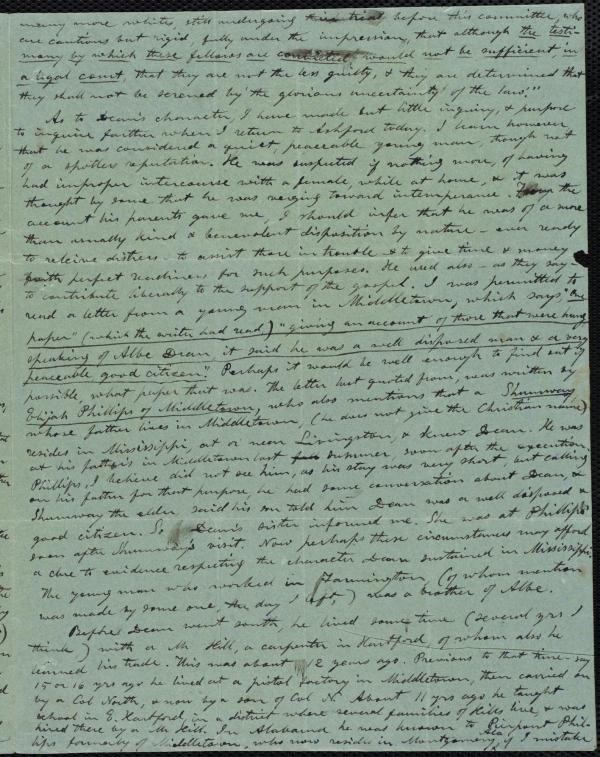 many more whites, still undergoing their trial, before this committee, who
are cautious but rigid, fully under the impression, that although the testi-
mony by which these fellows are convicted, would not be sufficient, in
a legal court, that they are not the less guilty, & they are determined that
they shall not be screened by 'the glorious uncertainty' of the law."
As to Dean's character, I have made but little inquiry, & purpose
to inquire farther when I return to Ashford today. I learn however
that he was considered a quiet, peaceable young man, though not
of a spotless reputation. He was suspected if nothing more, of having
had improper intercourse with a female, while at home, & it was
thought by some that he was verging toward intemperance. From the
account his parents gave me, I should infer that he was of a more
than usually kind & benevolent disposition by nature - ever ready
to releive distress - to assist those in trouble & to give time & money
with perfect readiness for such purposes. He used also - as they say -
to contribute liberally to the support of the gospel. I was permitted to
read a letter from a young man in Middletown, which says "one
paper" (which the writer had read) "giving an account of those that were hung
speaking of Albe Dean, it said he was a well disposed man & a very
peaceable good citizen". Perhaps it would be well enough to find out if
possible, what paper that was. The letter but quoted from, was written by
Elijah Phillips of Middletown, who also mentions that a Shumway
whose father lives in Middletown, (he does not give the Christian name)
resides in Mississippi, at or near Livingston, & knew Dean. He was
at his father's in Middletown last summer, soon after the execution.
Phillips, I believe did not see him, as his stay was very short but calling
on his father for that purpose, he had some conversation about Dean, &
Shumway the elder, said his son told him Dean was a well disposed &
good citizen. So Dean's sister informed me. She was at Phillips's
soon after Shumway's visit. Now perhaps these circumstances may afford
a clue to evidence respecting the character Dean sustained in Mississippi.
The young man who worked in Farmington, (of whom mention
was made by some one, the day I left,) was a brother of Albe.
Before Dean went south, he lived some time (several yrs I
think) with a Mr Hill, a carpenter in Hartford, of whom also he
learned his trade. This was about 12 years ago. Previous to that time - say
15 or 16 yrs ago he lived at a pistol factory in Middletown, then carried on
by a Col North, & now by a son of Col N. About 11 yrs ago he taught
school in E. Hartford, in a district where several families of Hills live, & was
hired there by a Mr Hill. In Alabama he was known to Pierpont Phil-
lips formerly of Middletown, who now resides in Montgomery Ala if I mistake